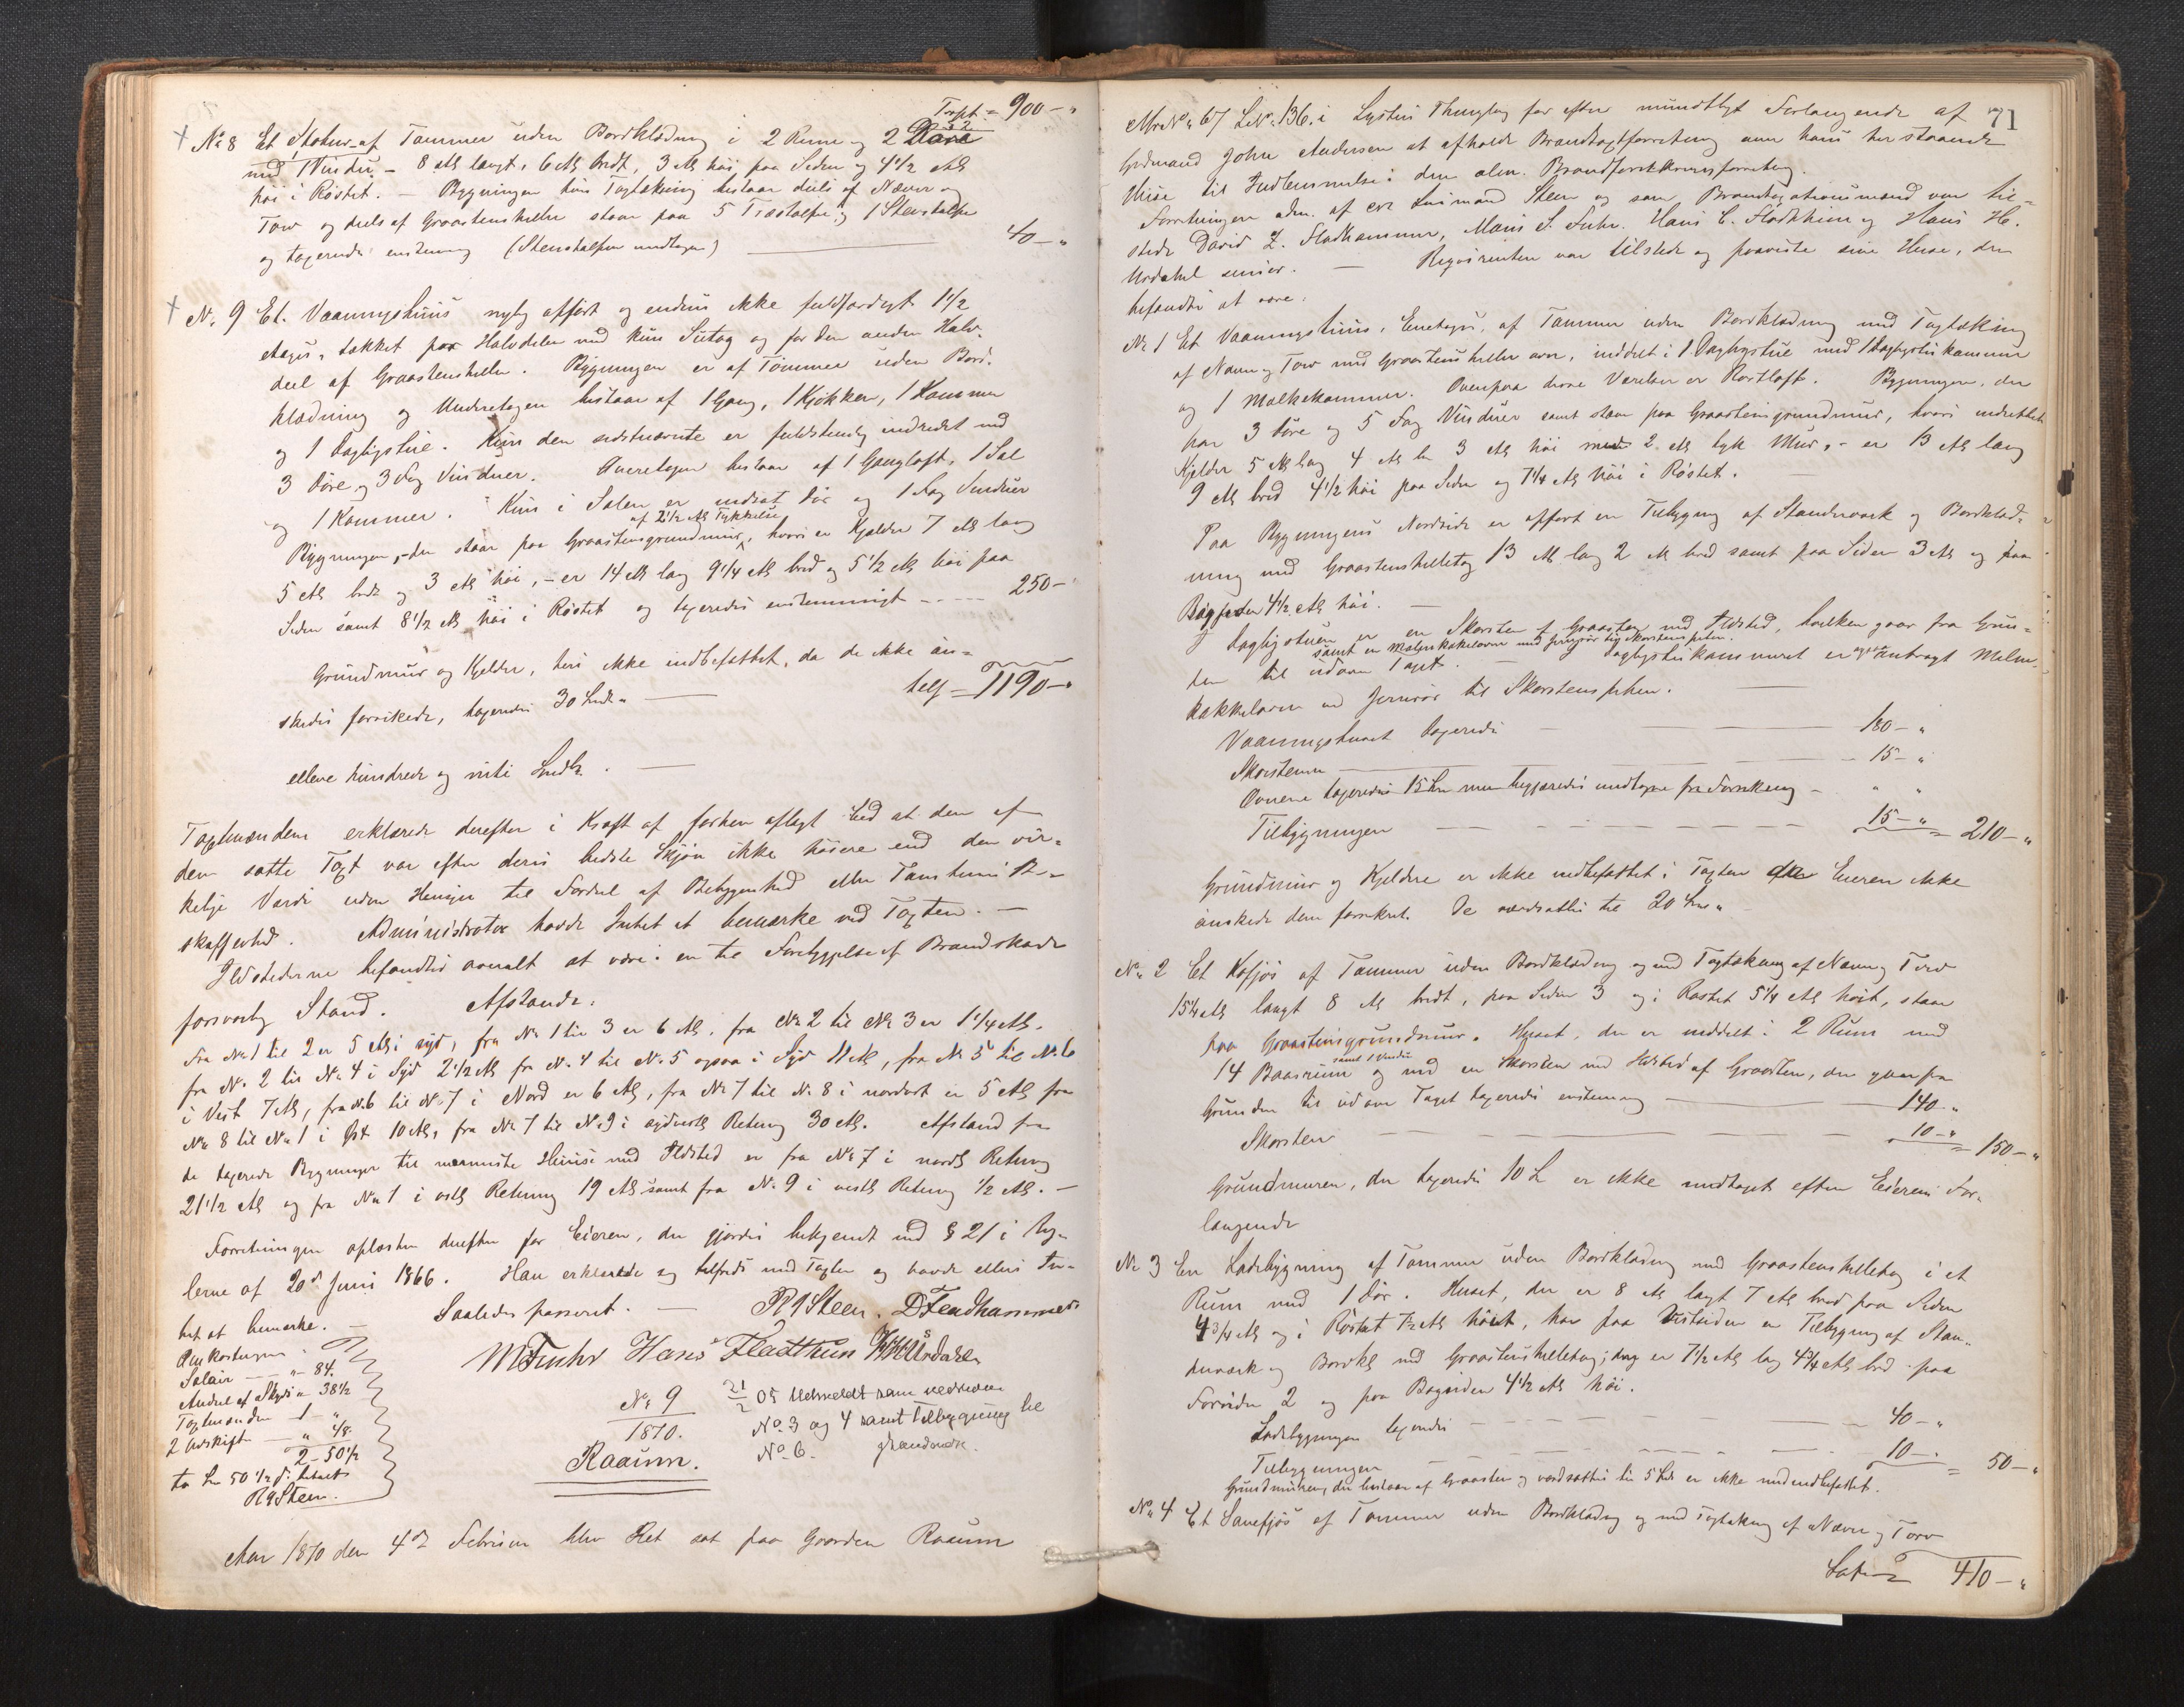 Trspt = 900 – "
+ No 8 Et Stolhus af Tømmer uden Bordklædning i 2 Rum og 2 Døre
med 1 Vindu. – 8 Al. langt, 6 Al. bredt, 3 Al. høi paa Siden og 4 1/2 Al.
høi i Røstet. – Bygningen hvis Tagtækning bestaar deels af Næver og
Torv og deels af Graasteensheller staar paa 5 Træstolper og 1 Steenstolpe
og taxeredes enstemmig (Steenstolpen undtagen) — 40 – "
+ No. 9 Et Vaaningshuus nylig opført og endnu ikke fuldfærdigt 1 1/2
Etages, tækket paa Halvdelen med kun Sutag og for den anden Halv-
deel af Graasteensheller. Bygningen er af Tømmer uden Bord-
klædning og Underetagen bestaar af 1 Gang, 1 Kjøkken, 1 Kammer
og 1 Dagligstue. Kun den sidstnævnte er fuldstændig indredet med
3 Døre og 3 Fag Vinduer. Overetagen bestaar af 1 Gangloft, 1 Sal
og 1 Kammer. Kun i Salen er indsat Dør og 1 Fag Vinduer
af 2 1/2 Al. Tykkelse
Bygningen, – der staar paa Graasteensgrundmuur, hvori er Kjelder 7 Al. lang
5 Al. bred og 3 Al. høi, – er 14 Al. lang 9 1/4 Al. bred og 5 1/2 Al. høi paa
Siden samt 8 1/2 Al. høi i Røstet og taxeredes enstemmigt – – – 250 –
Grundmuur og Kjelder, heri ikke indbefattet, da de ikke øn-
skedes forsikrede, taxeredes 30 Spd. " — tils = 1190 – "
elleve hundrede og niti Spdlr. —
Taxtmændene erklærede derefter i Kraft af forhen aflagt Eed at den af
dem satte Taxt var efter deres bedste Skjøn ikke høiere end den vir-
kelige Værdi uden Hensyn til Fordeel af Beliggenhed eller Tomtens Be-
skaffenhed. Administrator havde Intet at bemærke ved Taxten. –
Ildstederne befandtes overalt at være i en til Forebyggelse af Brandskade
forsvarlig Stand. Afstande.
Fra No 1 til 2 er 5 Al. i syd, fra No 1 til 3 er 6 Al. fra No 2 til No 3 er 1 1/4 Al.
fra No. 2 til No. 4 i Syd 2 1/2 Al. fra No. 4 til No. 5 ogsaa i Syd 11 Al, fra No 5 til No. 6
i Vest 7 Al, fra No. 6 til No. 7 i Nord er 6 Al, fra No 7 til No. 8 i nordost er 5 Al. fra
No 8 til No 1 i Øst 10 Al, fra No 7 til No. 9 i sydvestl. Retning 30 Al. Afstand fra
de taxerede Bygninger til nærmeste Huse med Ildsted er fra No 7 i nordl. Retning
21 1/2 Al. og fra No 1 i østl. Retning 19 Al. samt fra No. 9 i vestl. Retning 1/2 Al. –
Forretningen oplæstes derefter for Eieren, der gjordes bekjendt med § 21 i Lo-
vene af 20de Juni 1866. Han erklærede sig tilfreds med Taxten og havde ellers In-
tet at bemærke. – Saaledes passeret. – R Steen. D Fladhammer
M Fuhr Hans Fladthun H H Urdahl
Omkostninger:
Salair – – " – 84.
Andeel af Skyds " 38 1/2
Taxtmændene 1 – "
2 Udskrift – " 48.
2 – 50 1/2
to Sp 50 1/2 s. betalt
R Steen.
No. 9
1870.
Raaum.
21/2 05 Udmeldt som nedrevne
No. 3 og 4 samt tilbygning til
No. 6.
Aar 1870 den 4de Februar blev Ret sat paa Gaarden Raaum
71
Mr No. 67 L No. 136. i Lysters Thinglag for efter mundtligt Forlangende af
Gaardmand John Andersen at afholde Brandtaxtforretning over hans her staaende
Huse til Indlemmelse i den alm. Brandforsikringsforretning.
Forretningen adm. af cst Lensmand Steen og som Brandtaxationsmænd var til-
stede David L. Fladhammer, Mons S. Fuhr. Hans E. Fladthun og Hans H.
Urdahl senior. — Reqvirenten var tilstede og paaviste sine Huse, der
befandtes at være:
No 1 Et Vaaningshuus, Eenetages, af Tømmer uden Bordklædning med Tagtækning
af Næver og Torv med Graasteensheller over, inddelt i 1 Dagligstue med 1 Dagligstuekammer
og 1 Mælkekammer. Ovenpaa disse Værelser er Røstloft. Bygningen, der
har 3 Døre og 5 Fag Vinduer samt staar paa Graasteensgrundmuur, hvori indrettet
Kjelder 5 Al. lang 4 Al. br 3 Al. høi med 2 Al. tyk Muur, – er 13 Al. lang
9 Al. bred 4 1/2 høi paa Siden og 7 1/4 Al. høi i Røstet. —
Paa Bygningens Nordside er opført en Tilbygning af Standerværk og Bordklæd-
ning med Graasteenshelletag 13 Al. lang 2 Al. bred samt paa Siden 3 Al. og paa
Bagsiden 4 1/2 Al. høi. —
I Dagligstuen er en Skorsten af Graasteen med Ildsted, hvilken gaar fra Grun-
samt en Malmkakkelovn med Jernrør til Skorstenspiben.
den til udover Taget. – I Dagligstuekammeret er ogsaa anbragt Malm-
kakkelovn med Jernrør til Skorstenspiben. —
Vaaningshuset taxeredes — — 180 – "
Skorstenen — — 15 – "
Ovnene taxeredes 15 Spd. men begjæredes undtagne fra Forsikring – " "
Tilbygningen – – – – – – 15 – " = 210 – "
Grundmuur og Kjeldere er ikke indbefattet i Taxten da Eieren ikke
ønskede dem forsikret. De værdsattes til 20 Spd. "
No. 2 Et Kofjøs af Tømmer uden Bordklædning og med Tagtækning af Næver og Torv
15 1/4 Al. langt 8 Al. bredt, paa Siden 3 og i Røstet 5 1/4 Al. høit, staar
paa Graasteensgrundmuur. Huset, der er inddelt i 2 Rum med
samt 1 Vindu
14 Baasrum og med en Skorsten med Ildsted af Graasteen, der gaar fra
Grunden til udover Taget taxeredes enstemmig — 140 – "
Skorsten – – – – – 10 – " = 150 – "
Grundmuren, der taxeredes 10 S er ikke medtaget efter Eierens For-
langende
No 3 En Ladebygning af Tømmer uden Bordklædning med Graasteenshelletag i et
Rum med 1 Dør. Huset, der er 8 Al. langt 7 Al. bred paa Siden
4 3/4 Al. og i Røstet 7 1/2 Al. høit, har paa Vestsiden en Tilbygning af Stan-
derværk og Bordkl. med Graasteenshelletag; den er 7 1/2 Al. lang 4 3/4 Al. bred paa
Forsiden 2 og paa Bagsiden 4 1/2 Al. høi.
Ladebygningen taxeredes – – – – – 40 – "
Tilbygningen – – – – – – 10 – " = 50 – "
Grundmuren, der bestaar af Graasteen og værdsattes til 5 Spd. er ikke med indbefattet.
No. 4 Et Sauefjøs af Tømmer uden Bordklædning og med Tagtækning af Næver og Torv
Latus 410 – "